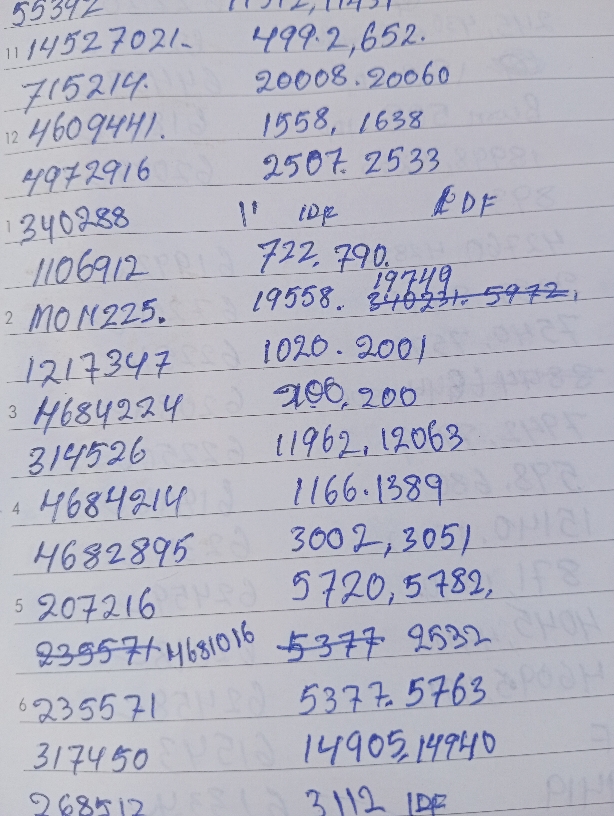 55392
11 14527021. 499.2,652.
715214. 20008.20060
12 4609441. 1558, 1638
4972916 2507. 2533
1 340288 11 IDF IDF
1106912 722. 790.
19749
2 M011225. 19558. 340231. 5972.
1217347 1020. 2001
3 4684224 200. 200
314526 11962, 12063
4 4684214 1166.1389
4682895 3002, 3051
5 207216 5720, 5782,
235571 4681016 5377 2532
6 235571 5377. 5763
317450 14905, 14940
268512 3112 IDF